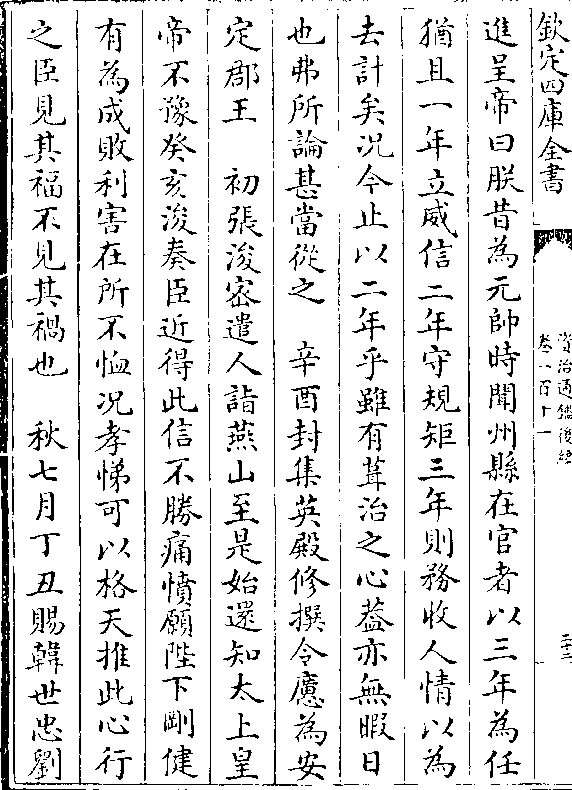 欽定四庫全書
資治通鑑後編
卷一百十一
二十二
進呈帝曰朕昔為元帥時聞州縣在官者以三年為任
猶且一年立威信二年守規矩三年則務收人情以為
去計矣况今止以二年乎雖有葺治之心葢亦無暇日
也弗所論甚當從之　辛酉封集英殿修撰令懬為安
定郡王　初張浚宻遣人詣燕山至是始還知太上皇
帝不豫癸亥浚奏臣近得此信不勝痛憤願陛下剛健
有為成敗利害在所不恤况孝悌可以格天推此心行
之臣見其福不見其禍也　秋七月丁丑賜韓世忠劉